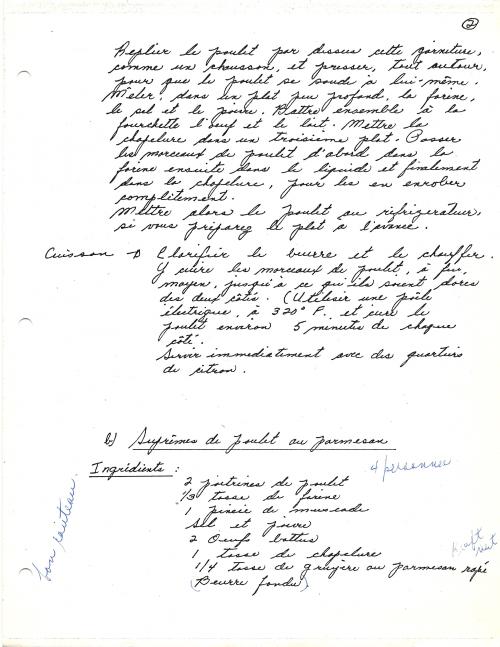 2
Replier le poulet par dessus cette garniture,
comme un chausson, et presser, tout autour,
pour que le poulet se soude à lui-même.
Mêler, dans un plat peu profond, la farine,
le sel et le poivre. Battre ensemble à la
fourchette l'oeuf et le lait. Mettre la
chapelure dans un troisième plat. Passer
les morceaux de poulet d'abord dans la
farine ensuite dans le liquide et finalement
dans la chapelure, pour les en enrober
complètement.
Mettre alors le poulet au réfrigérateur,
si vous préparez le plat à l'avance.
Cuisson → Clarifier le beurre et le chauffer.
Y cuire les morceaux de poulet, à feu
moyen, jusqu'à ce qu'ils soient dorés
des deux côtés. (Utiliser une poêle
électrique, à 320° F. et cuire le
poulet environ 5 minutes de chaque
côté.
Servir immédiatement avec des quartiers
de citron.
b) Suprêmes de poulet au parmesan
Ingrédients :
4 personnes
2 poitrines de poulet
1/3 tasse de farine
1 pincée de muscade
Sel et poivre
2 Oeufs battus
1 tasse de chapelure
1/4 tasse de gruyère ou parmesan rapé
(Beurre fondu)
Kraft